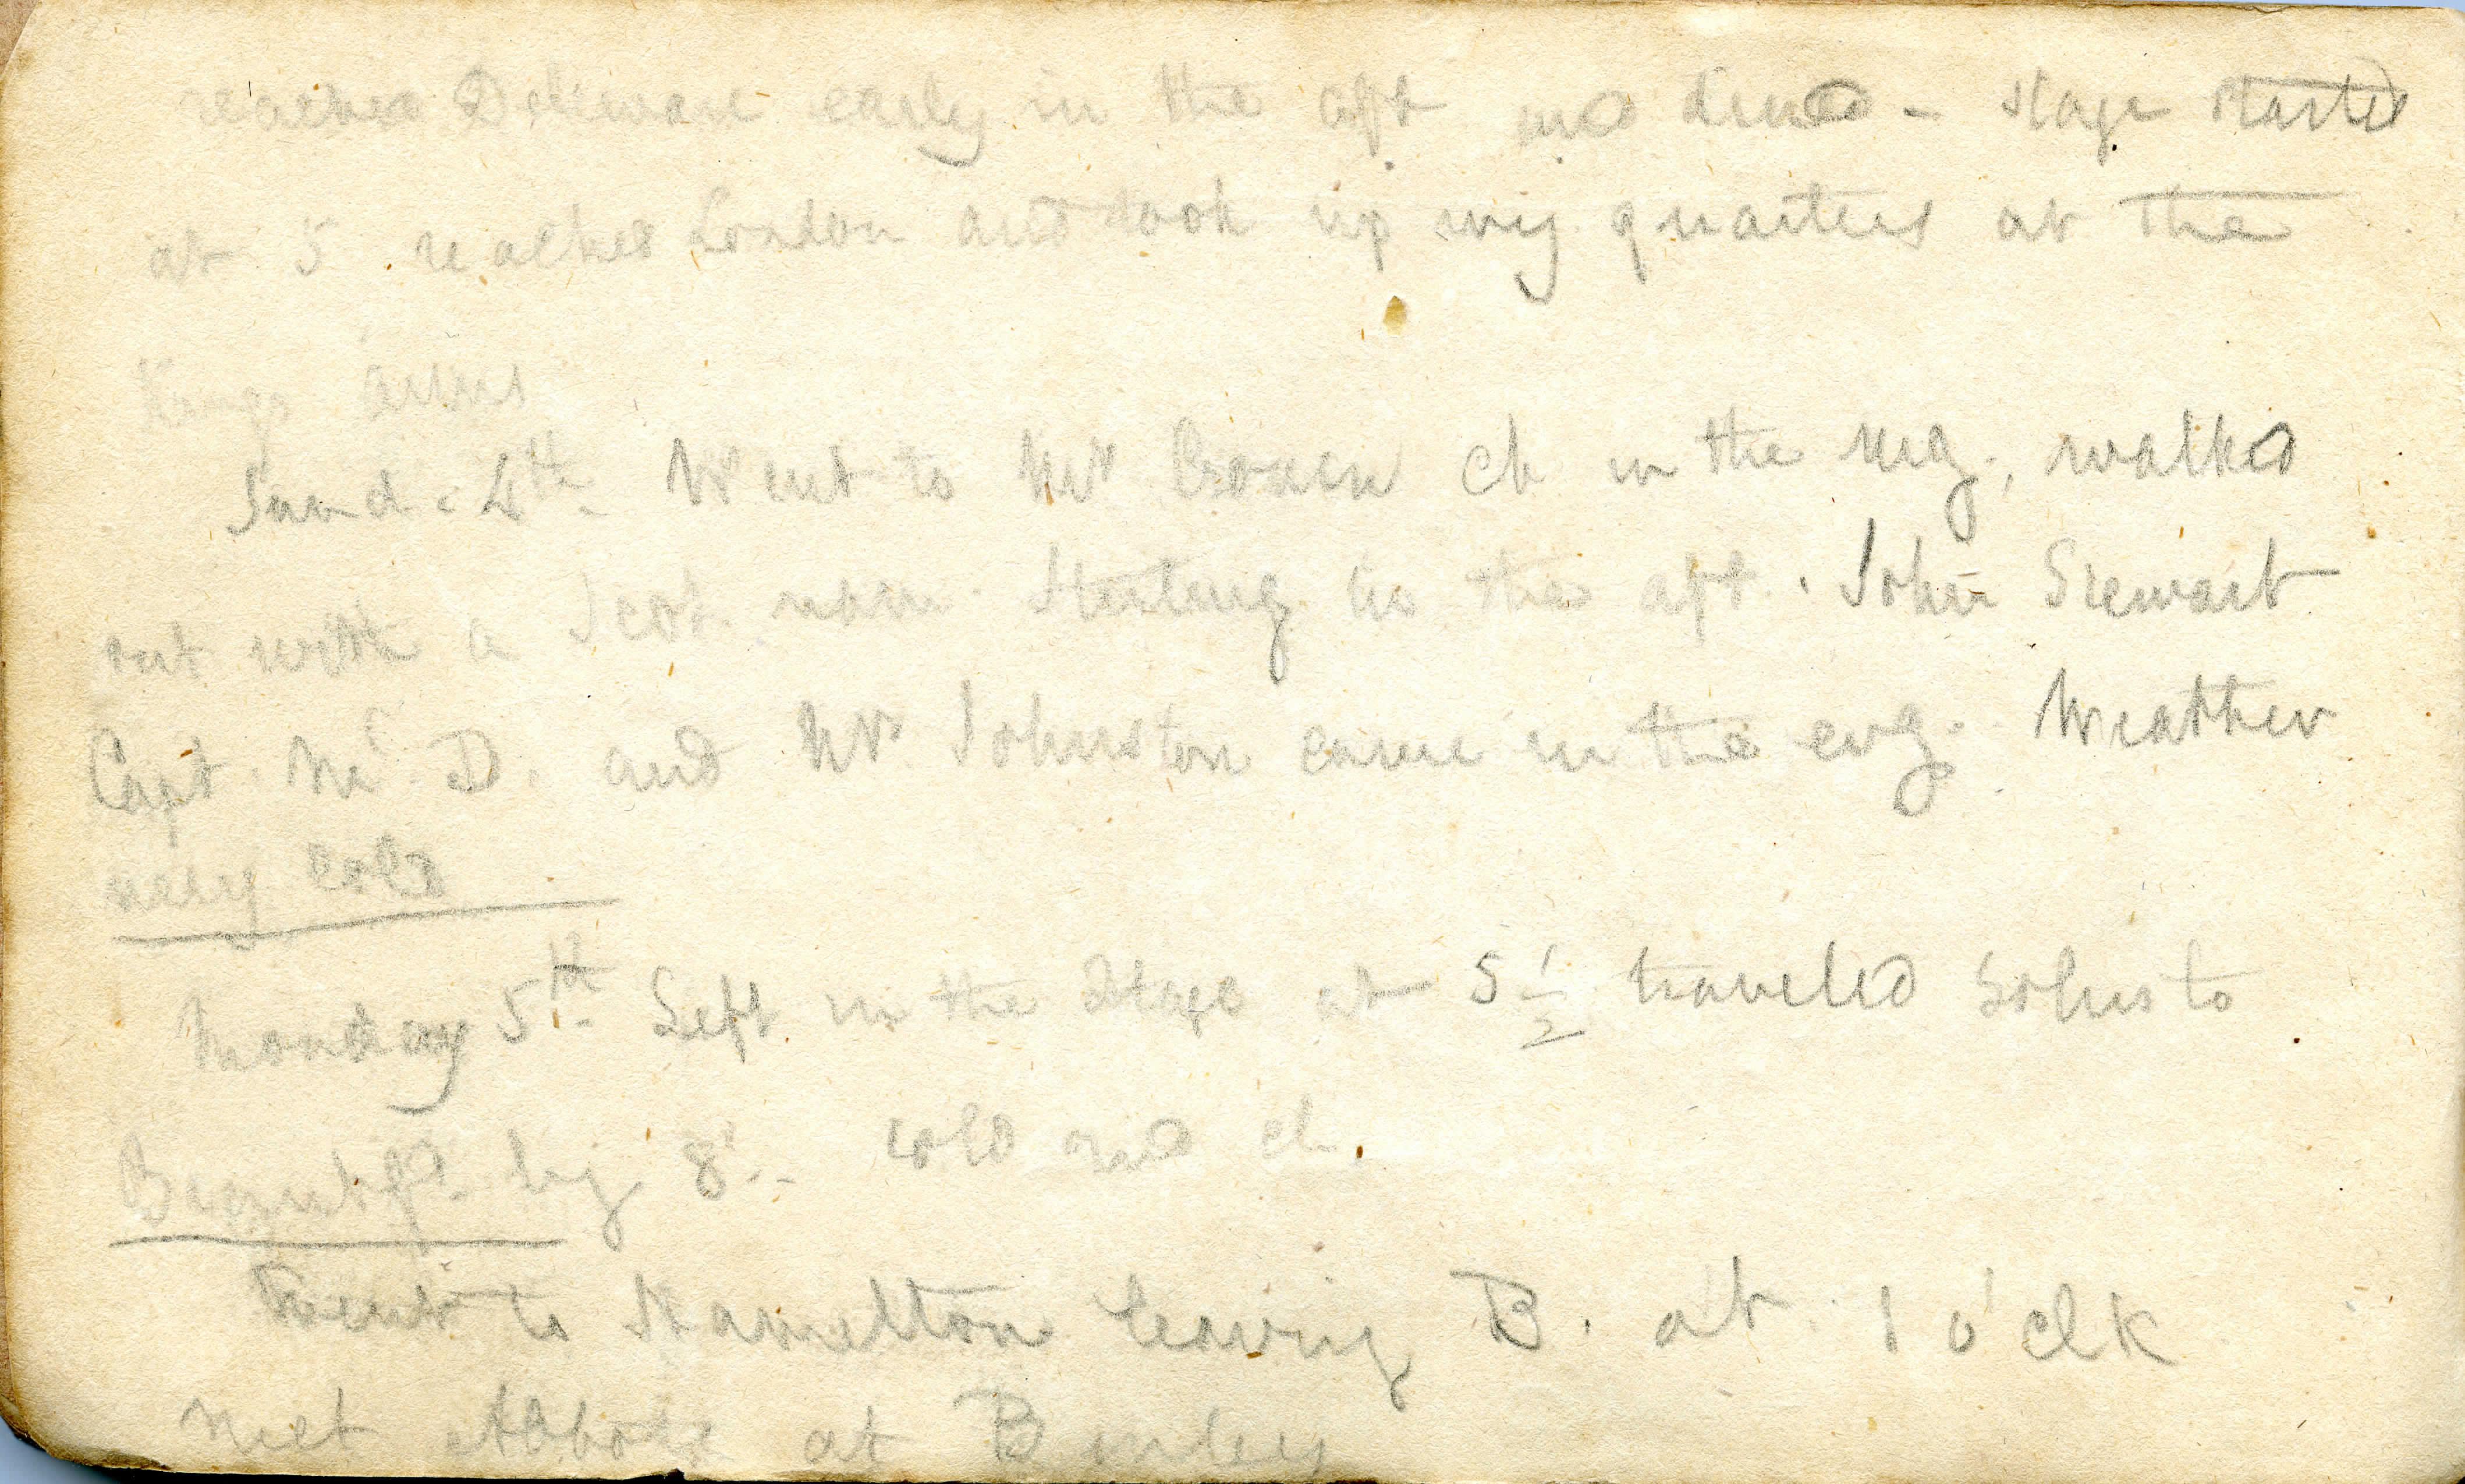 reached Deleware early in the aft and dined - stage started
at 5 reached London and took up my quarters at the
Kings arms
Sund. 4th Went to Mr Cronyn ch in the mg., walked
out with a Scot. nam. Sterling in the aft. John Stewart
Capt. Mc. D. and Mr Johnston came in the evg. Weather
very cold
Monday 5th. Left in the stage at 5 1/2 traveled solus to
Brantfd. by 8'.. cold and ch.
Went to Hamelton leaving B. at 1 o'clk
met Abbott at